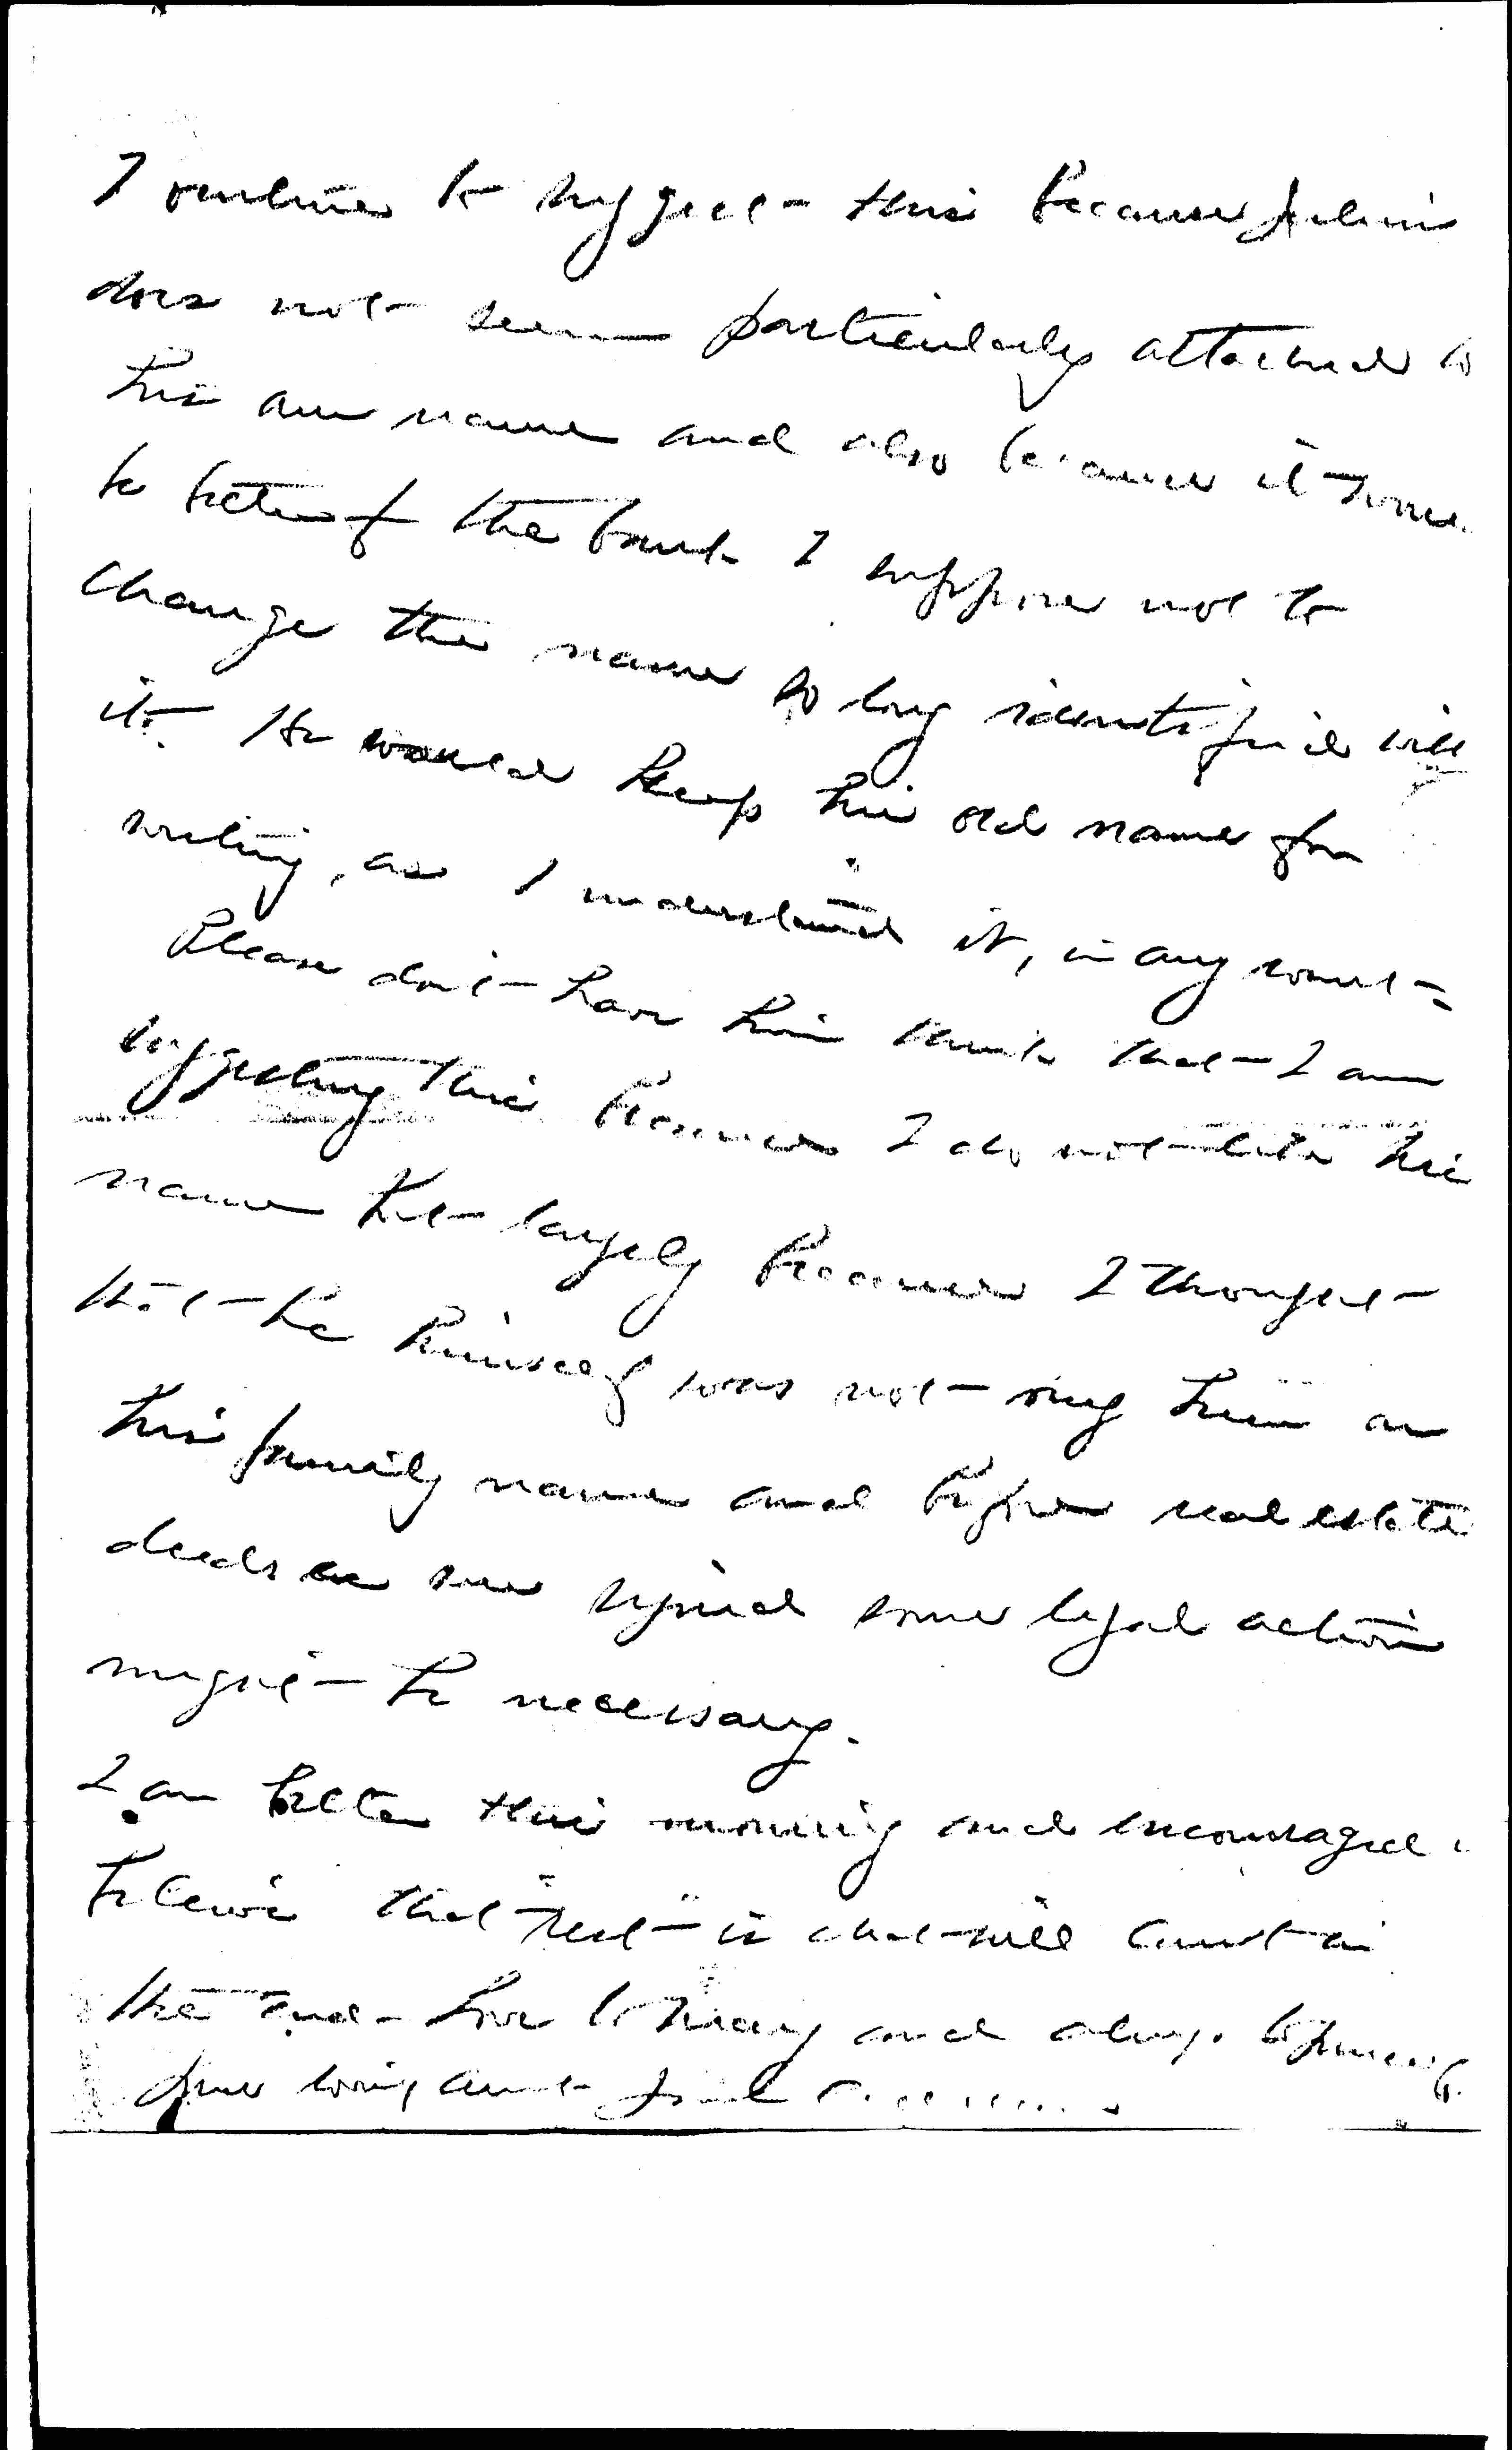 I venture to suggest this because
does not seem particularly attached to
his own name and also because it
be better for the bank I suppose not to
change the name so long identified with
it. He would keep his old name for
writing, as I understand it, in any event.
Please don't have him think that I am
suggesting this because I do not like his
name but largely because I thought
that he himself was not using him as
his family name and before real estate
deeds are signed some legal action
might be necessary.
I am better this morning and encouraged
believe that "rest" is what will count in
the end - Love to and